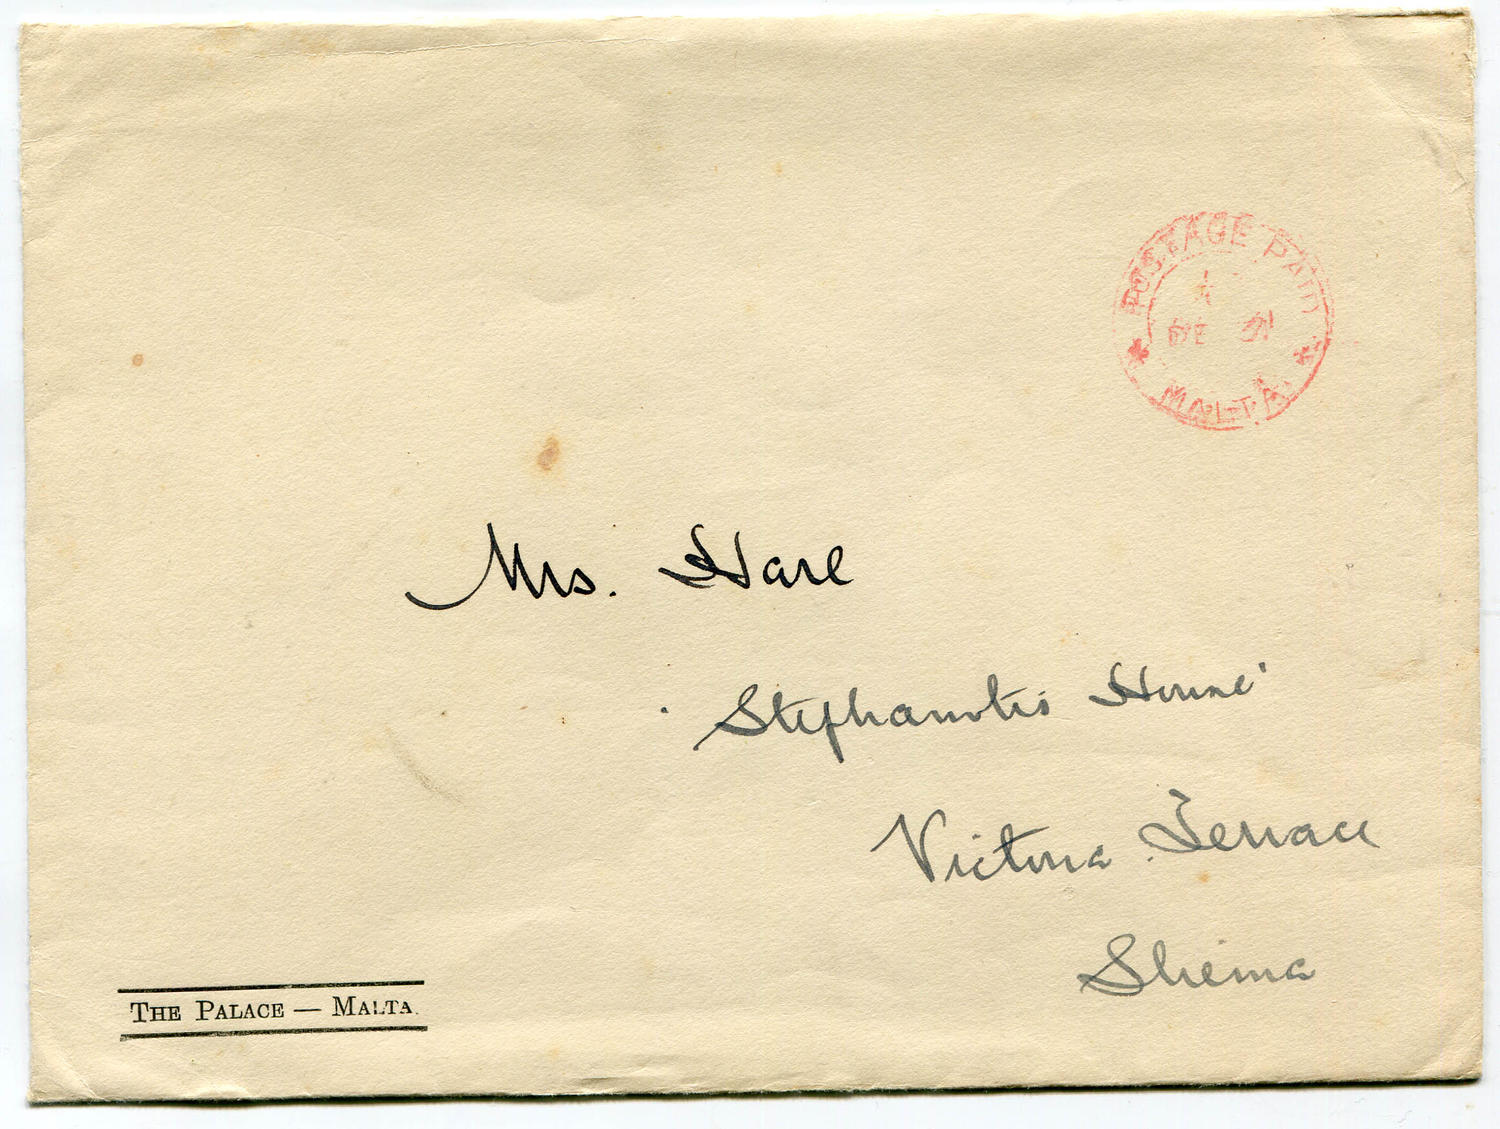 POSTAGE PAID
MALTA
Mrs. Hare
'Stephanotis House'
Victoria Terrace
Sliema
THE PALACE — MALTA.